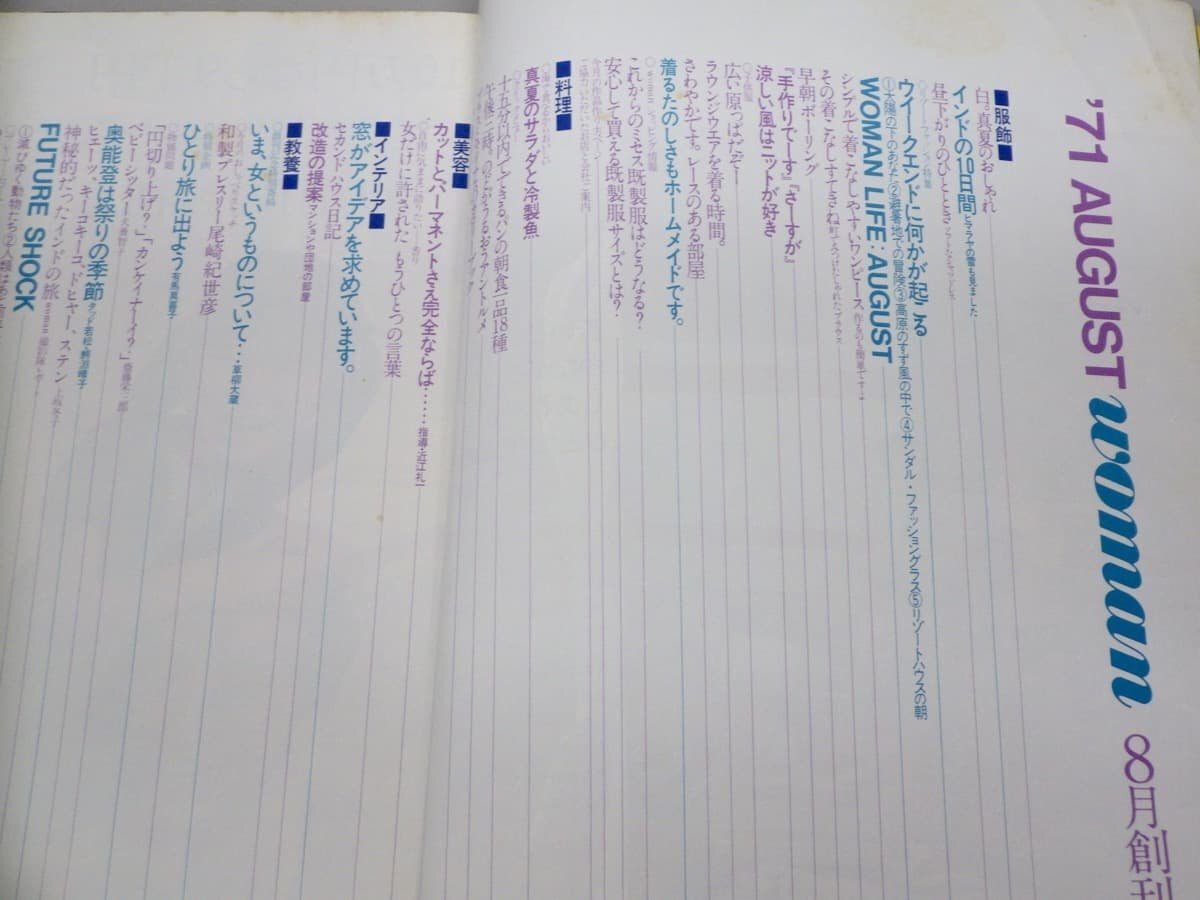 '71 AUGUST woman 8月創刊
■服飾■
白。真夏のおしゃれ
インドの10日間 ヒマラヤの雪も見ました
昼下がりのひととき
ウイークエンドに何かが起こる
①太陽の下のあなた②避暑地での冒険③高原のすず風の中で④サンダル・ファッショングラス⑤リゾートハウスの朝
WOMAN LIFE・AUGUST
シンプルで着こなしやすいワンピース。作るのも簡単です
その着こなしすてきね
早朝ボーリング
『手作りでーす』『さーすが』
涼しい風はニットが好き
○子供服
広い原っぱだぞー
ラウンジウエアを着る時間。
さわやかです。レースのある部屋
着るたのしさもホームメイドです。
これからのミセス既製服はどうなる?
安心して買える既製服サイズとは?
■料理■
真夏のサラダと冷製魚
十五分以内でできるパンの朝食一品18種
■美容■
カットとパーマネントさえ完全ならば…… 指導・近江礼一
女だけに許された もうひとつの言葉
■インテリア■
窓がアイデアを求めています。
セカンドハウス日記
改造の提案 マンションや団地の部屋
■教養■
いま、女というものについて… 草柳大蔵
和製プレスリー尾崎紀世彦
ひとり旅に出よう 有馬真喜子
「円切り上げ?」「カンケイナーイ?」
ベビーシッター
奥能登は祭りの季節
ヒューッ、キーコキーコ、ドヒャー、ステン
神秘的だったインドの旅
FUTURE SHOCK